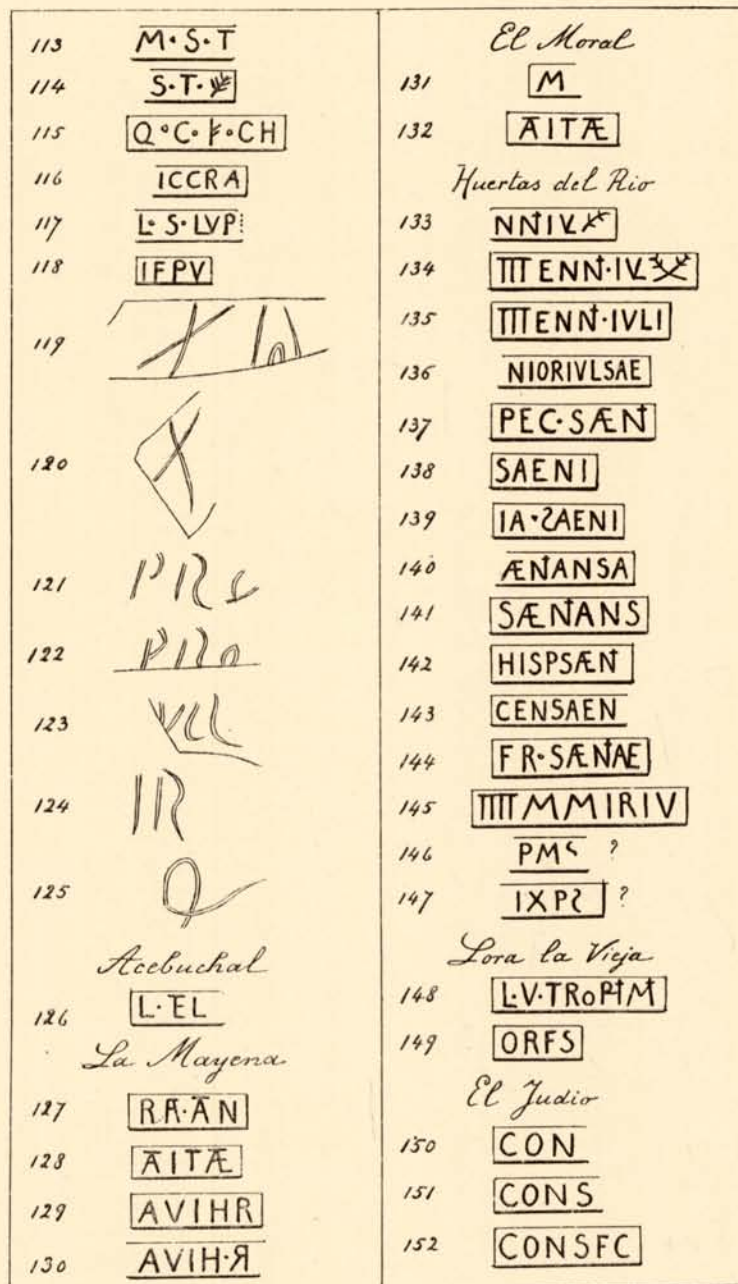 113 M·S·T
114 S·T·
115 Q·C·F·CH
116 ICCRA
117 L·S·LVP
118 IFPV
119
120
121 PR
122 PR
123
124 IR
125
Acebuchal
126 L·EL
La Mayena
127 RA·AN
128 AITÆ
129 AVIHR
130 AVIH·Я
El Moral
131 M
132 AITÆ
Huertas del Rio
133 NNIV
134 IIIENN·IV
135 IIIENN·IVLI
136 NIORIVLSAE
137 PEC·SÆN
138 SAENI
139 IA·SAENI
140 ÆNANSA
141 SÆNANS
142 HISPSÆN
143 CENSAEN
144 FR·SÆNAE
145 IIIIMMIRIV
146 PM ?
147 IXPS ?
Lora la Vieja
148 L·V·TROPIM
149 ORFS
El Judio
150 CON
151 CONS
152 CONSFC